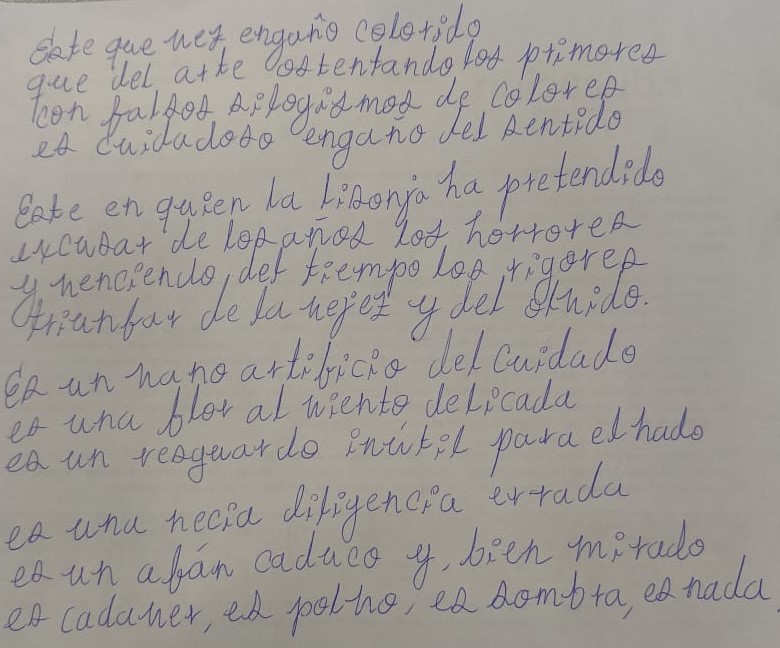 Este que ves engaño colorido
que del arte ostentando los primores
con falsos silogismos de colores
es cuidadoso engaño del sentido
Este en quien la lisonja ha pretendido
excusar de los años los horrores
y venciendo, del tiempo los rigores
triunfar de la vejez y del olvido.
Es un vano artificio del cuidado
es una flor al viento delicada
es un resguardo inútil para el hado
es una necia diligencia errada
es un afán caduco y, bien mirado
es cadaver, es polvo, es sombra, es nada.